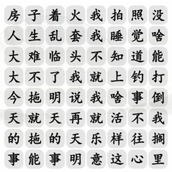 房子着火我拍照没
人生乱套我睡觉啥
大难临头不知道能
大不了我就上钓打
今拖明说我啥事倒
天就天再就活不我
的拖的天乐样往搁
事能事明意这心里